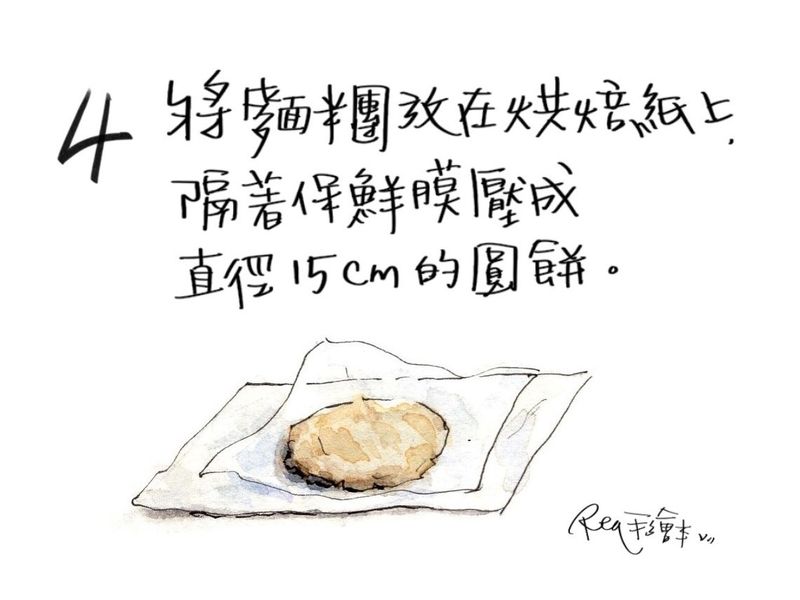 4 將麵糰放在烘焙紙上,
隔著保鮮膜壓成
直徑15cm的圓餅。
Rea手繪本